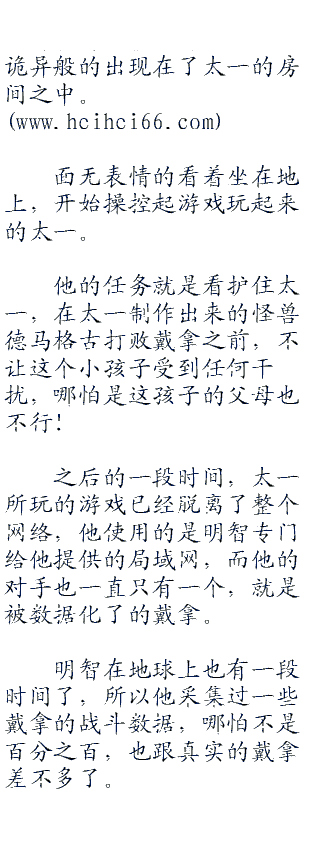 诡异般的出现在了太一的房
间之中。
(www.hcihci66.com)
面无表情的看着坐在地
上，开始操控起游戏玩起来
的太一。
他的任务就是看护住太
一，在太一制作出来的怪兽
德马格古打败戴拿之前，不
让这个小孩子受到任何干
扰，哪怕是这孩子的父母也
不行!
之后的一段时间，太一
所玩的游戏已经脱离了整个
网络，他使用的是明智专门
给他提供的局域网，而他的
对手也一直只有一个，就是
被数据化了的戴拿。
明智在地球上也有一段
时间了，所以他采集过一些
戴拿的战斗数据，哪怕不是
百分之百，也跟真实的戴拿
差不多了。